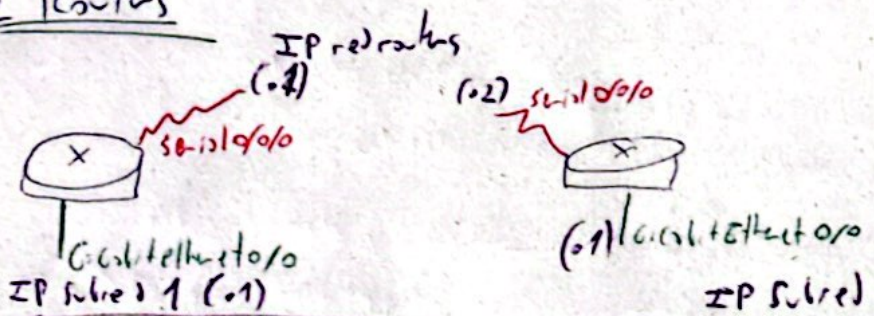 Routers
IP red routers
(.1)
serial 0/0/0
(.2) serial 0/0/0
X
X
Gigabitethernet 0/0
(.1) GigabitEthernet 0/0
IP Subred 1 (.1)
IP Subred